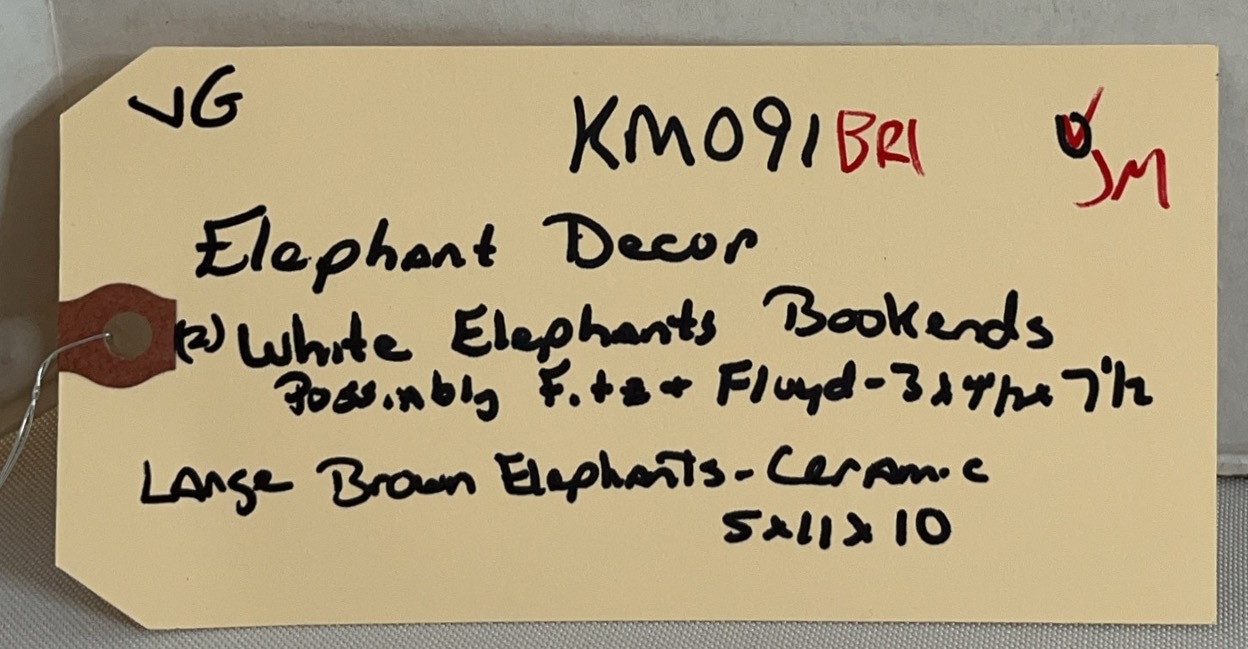 VG
KM091 BR1
JM
Elephant Decor
(2) White Elephants Bookends
Possinbly Fitz + Floyd - 3 x 4 1/2 x 7 1/2
Large Brown Elephants - Ceramic
5 x 11 x 10